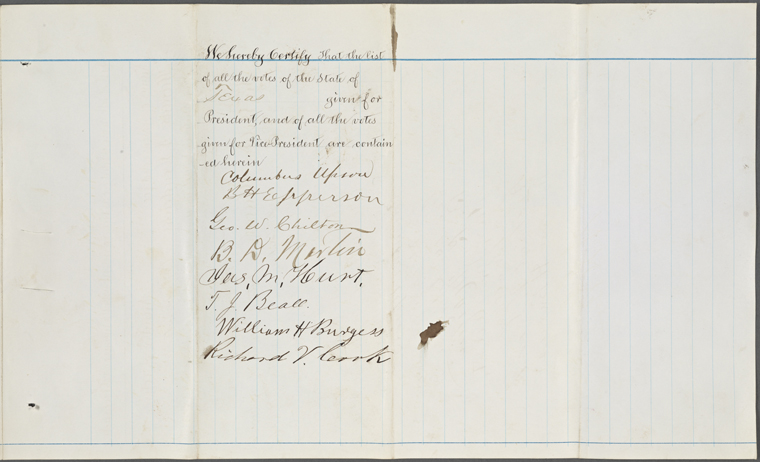 We hereby Certify That the list
of all the votes of the State of
Texas given for
President, and of all the votes
given for Vice-President are contain
-ed herein
Columbus Upson
B H Epperson
Geo. W. Chilton
B. D. Martin
Jas. M. Hurt.
T. J. Beall.
William H Burgess
Richard V. Cook